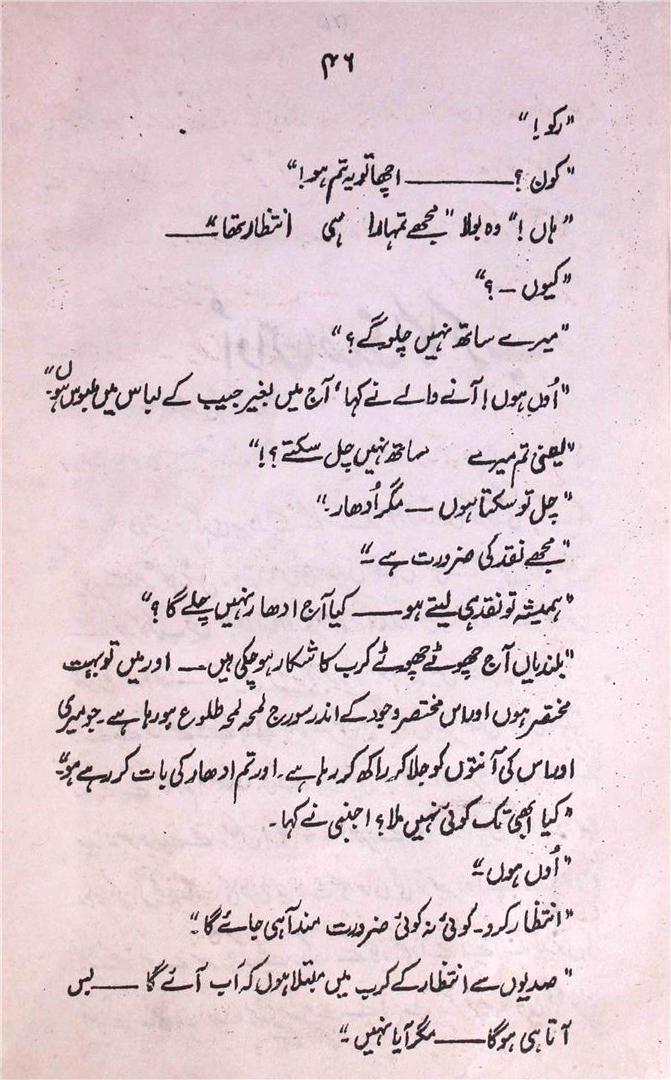 ۴۶
"رکو!"
"کون؟ ——— اچھا تو یہ تم ہو!"
"ہاں!" وہ بولا "مجھے تمہارا ہی انتظار تھا" ——
"کیوں ـ ؟"
"میرے ساتھ نہیں چلو گے؟"
"اُوں ہوں! آنے والے نے کہا، آج میں بغیر جیب کے لباس میں ملبوس ہوں"
"یعنی تم میرے ساتھ نہیں چل سکتے؟!"
"چل تو سکتا ہوں — مگر اُدھار۔"
"مجھے نقد کی ضرورت ہے ـ"
"ہمیشہ تو نقد ہی لیتے ہو —— کیا آج ادھار نہیں چلے گا؟"
"بلندیاں آج چھوٹے چھوٹے کرب کا شکار ہو چکی ہیں — اور میں تو بہت
مختصر ہوں اور اس مختصر وجود کے اندر سورج لمحہ لمحہ طلوع ہو رہا ہے۔ جو میری
اور اس کی آنتوں کو جلا کر راکھ کر رہا ہے۔ اور تم ادھار کی بات کر رہے ہو"
"کیا ابھی تک کوئی نہیں ملا؟ اجنبی نے کہا۔
"اُوں ہوں ـ"
"انتظار کرو۔ کوئی نہ کوئی ضرورت مند آ ہی جائے گا۔"
"صدیوں سے انتظار کے کرب میں مبتلا ہوں کہ اَب آئے گا —— بس
آتا ہی ہوگا —— مگر آیا نہیں ـ"